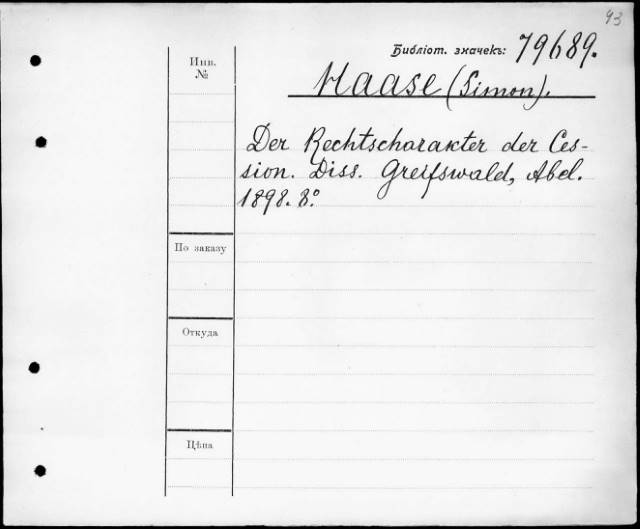 93
Библіот. значекъ: 79689.
Инв.
№
Haase (Simon).
Der Rechtscharakter der Ces-
sion. Diss. Greifswald, Abel.
1898. 8º
По заказу
Откуда
Цѣна